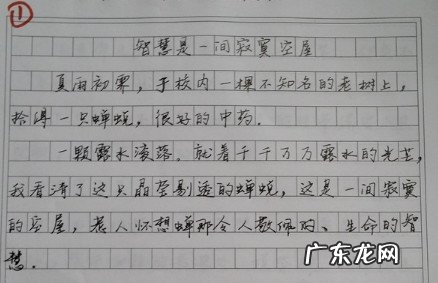 ①
智慧是一间寂寞空屋
夏雨初霁，于校内一棵不知名的老树上，
拾得一只蝉蜕，很好的中药．
一颗露水滚落，就着千千万万露水的光芒，
我看清了这只晶莹剔透的蝉蜕，这是一间寂寞
的空屋，老人怀想蝉那令人敬佩的、生命的智
慧．
广东龙网